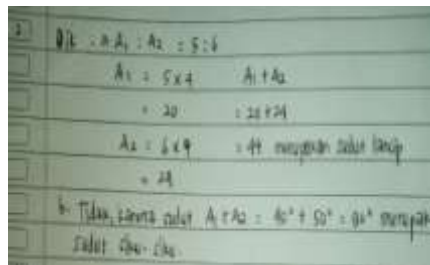 Dik : a. A₁ : A₂ = 5:6
A₁ = 5x4 A₁+A₂
= 20 = 20+24
A₂ = 6x4 = 44 merupakan sudut lancip
= 24
b. Tidak, karena sudut A₁+A₂ = 40°+50° = 90° merupakan
sudut siku-siku.